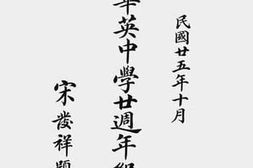 民國廿五年十月
華英中學廿週年紀
宋發祥題